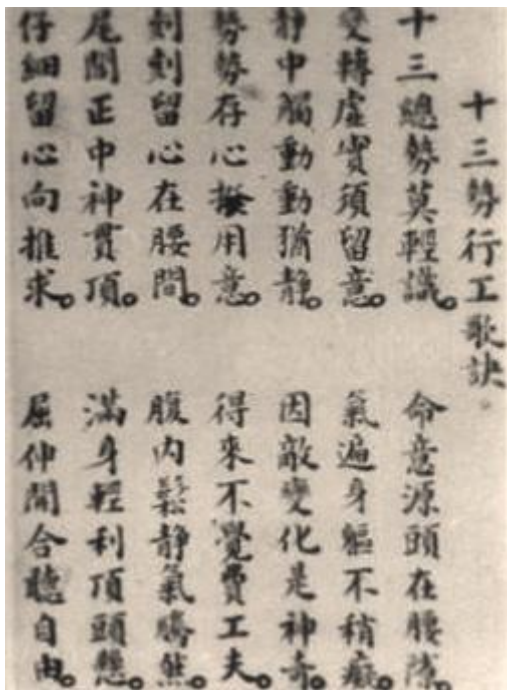 十三勢行工歌訣
十三總勢莫輕識。命意源頭在腰隙。
變轉虛實須留意。氣遍身軀不稍癡。
静中觸動動猶静。因敵變化是神奇。
勢勢存心揆用意。得來不覺費工夫。
刻刻留心在腰間。腹内鬆静氣騰然。
尾閭正中神貫頂。滿身輕利頂頭懸。
仔細留心向推求。屈伸開合聽自由。